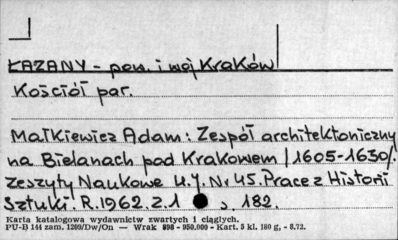 ŁAZANY - pow. i woj Kraków
Kościół par.
Małkiewicz Adam: Zespół architektoniczny
na Bielanach pod Krakowem /1605-1630/.
Zeszyty Naukowe U.J. Nr 45. Prace z Historii
Sztuki. R.1962. Z.1 s. 182.
Karta katalogowa wydawnictw zwartych i ciągłych.
PU-B 144 zam. 1209/Dw/On — Wrak 898 - 950.000 - Kart. 5 kl. 180 g, - 8.72.